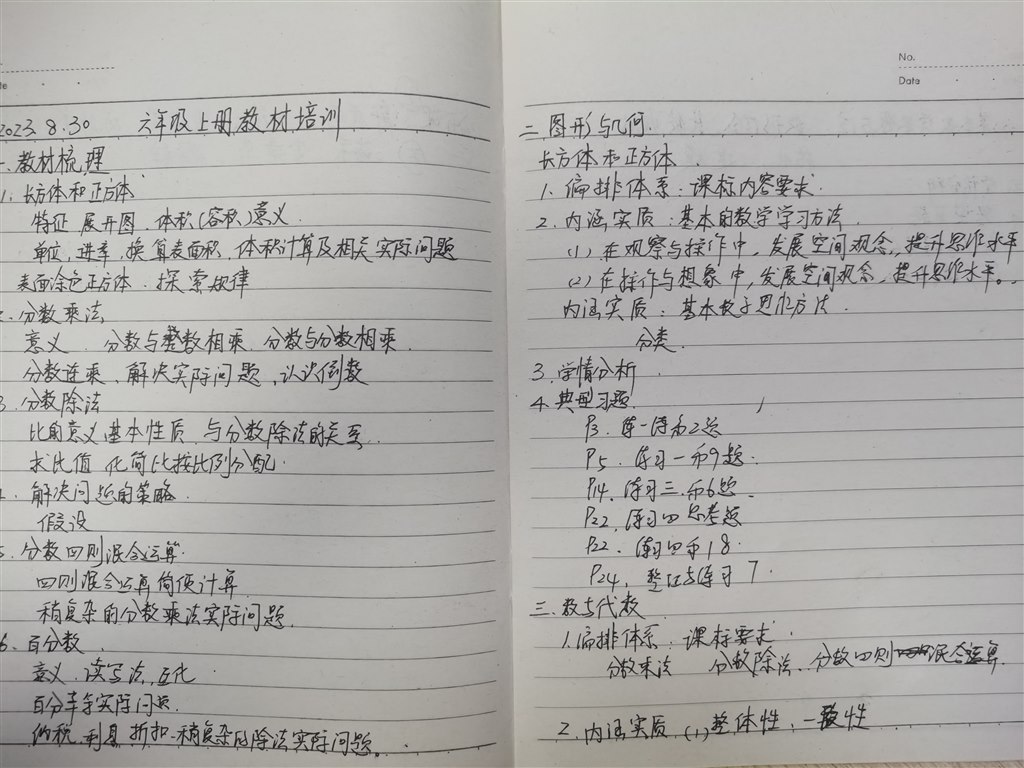 2023.8.30 六年级上册教材培训
一.教材梳理
1.长方体和正方体
特征 展开图 体积(容积)意义
单位,进率,换算表面积,体积计算及相关实际问题
表面涂色正方体.探索规律
2.分数乘法
意义.分数与整数相乘.分数与分数相乘.
分数连乘、解决实际问题、认识倒数
3.分数除法
比的意义基本性质、与分数除法的关系.
求比值 化简比按比例分配.
4.解决问题的策略.
假设
5.分数四则混合运算.
四则混合运算简便计算.
稍复杂的分数乘法实际问题.
6.百分数
意义.读写法,互化
百分率等实际问题.
纳税.利息 折扣.稍复杂的除法实际问题。
No.
Date
二图形与几何.
长方体和正方体
1.编排体系:课标内容要求.
2.内涵实质:基本的数学学习方法
(1)在观察与操作中,发展空间观念,提升思维水平
(2)在操作与想象中,发展空间观念,提升思维水平。
内涵实质:基本数学思想方法.
分类.
3.学情分析
4.典型习题.
P3.练一练和2题
P5.练习一第9题.
P14.练习三.第6题.
P22.练习四思考题
P22.练习四第18.
P24,整理与练习7.
三.数与代数
1.编排体系:课标要求.
分数乘法 分数除法、分数四则混合运算.
2.内涵实质.(1)整体性,一致性